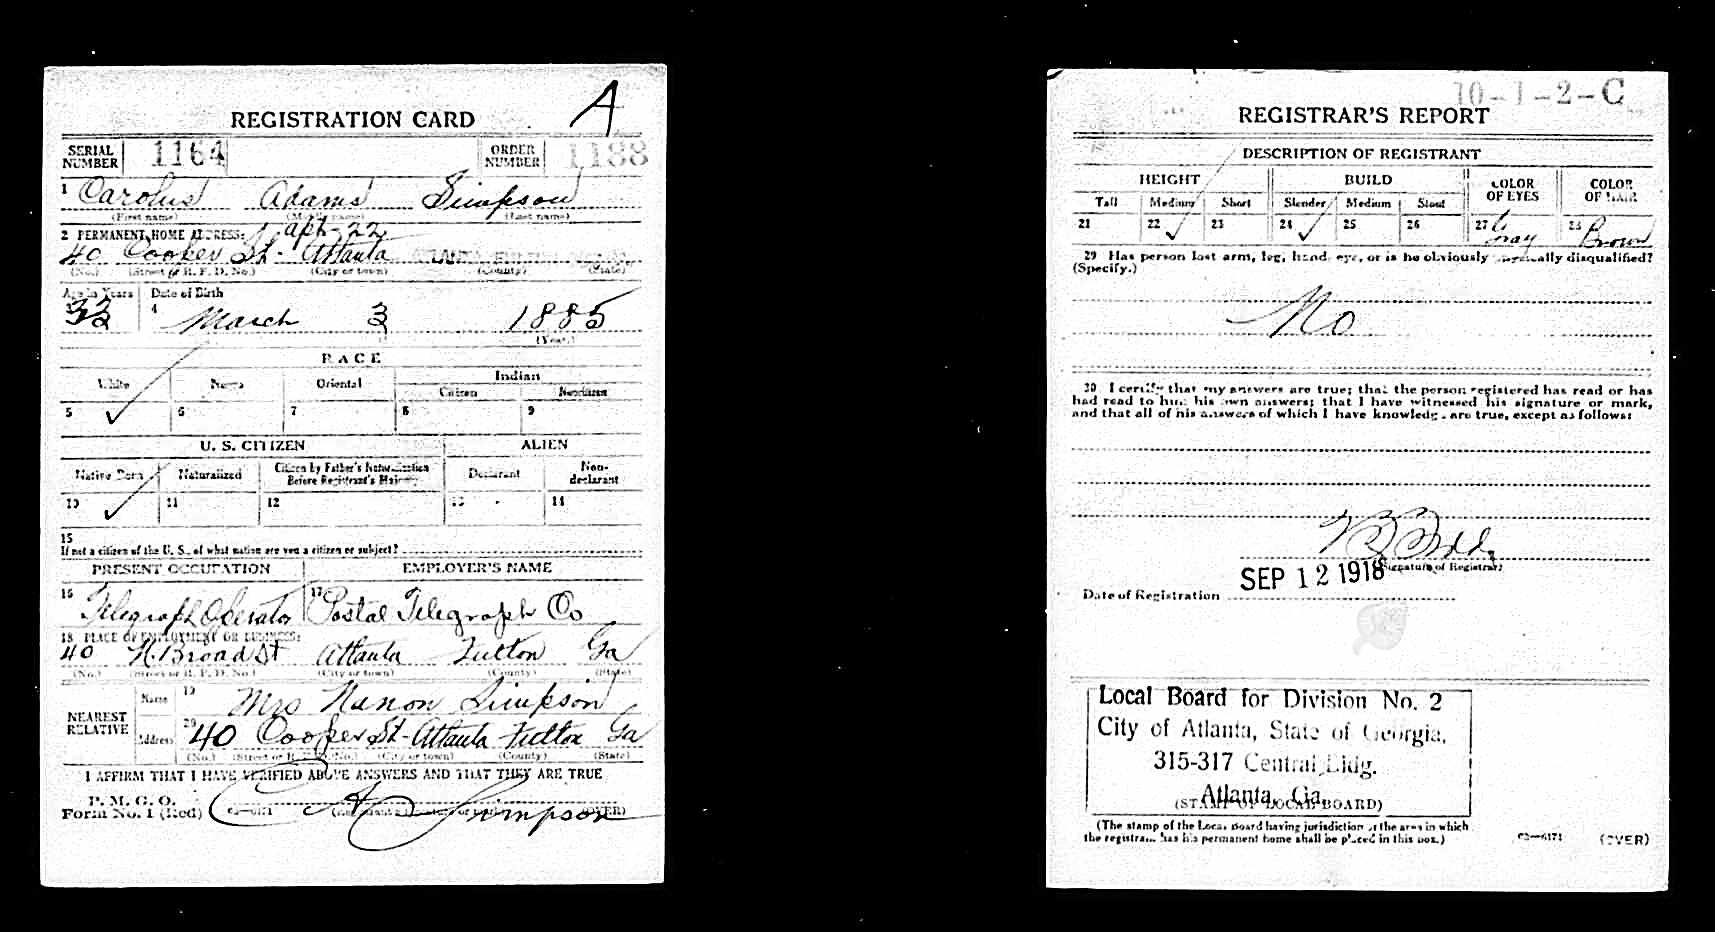 A
REGISTRATION CARD
SERIAL NUMBER 1164 ORDER NUMBER 1188
1 Carolus Adams Simpson
(First name) (Middle name) (Last name)
2 PERMANENT HOME ADDRESS: apt-22
40 Cooper St- Atlanta
(No.) (Street or R. F. D. No.) (City or town) (County) (State)
Age in Years Date of Birth
3 33 4 March 3 1885
(Year.)
RACE
White Negro Oriental Indian
Citizen Noncitizen
5 ✓ 6 7 8 9
U. S. CITIZEN ALIEN
Native Born Naturalized Citizen by Father's Naturalization Before Registrant's Majority Declarant Non-declarant
10 ✓ 11 12 13 14
15
If not a citizen of the U. S., of what nation are you a citizen or subject?
PRESENT OCCUPATION EMPLOYER'S NAME
16 Telegraph Operator 17 Postal Telegraph Co
18 PLACE OF EMPLOYMENT OR BUSINESS:
40 N. Broad St Atlanta Fulton Ga
(No.) (Street or R. F. D. No.) (City or town) (County) (State)
NEAREST RELATIVE Name 19 Mrs Nanon Simpson
Address 20 40 Cooper St- Atlanta Fulton Ga
(No.) (Street or R. F. D. No.) (City or town) (County) (State)
I AFFIRM THAT I HAVE VERIFIED ABOVE ANSWERS AND THAT THEY ARE TRUE
P. M. G. O.
Form No. 1 (Red) C A Simpson (OVER)
10-1-2-C
REGISTRAR'S REPORT
DESCRIPTION OF REGISTRANT
HEIGHT BUILD COLOR OF EYES COLOR OF HAIR
Tall Medium Short Slender Medium Stout
21 22 ✓ 23 24 ✓ 25 26 27 Gray 28 Brown
29 Has person lost arm, leg, hand, eye, or is he obviously physically disqualified?
(Specify.)
No
30 I certify that my answers are true; that the person registered has read or has
had read to him his own answers; that I have witnessed his signature or mark,
and that all of his answers of which I have knowledge are true, except as follows:
(Signature of Registrar)
Date of Registration SEP 12 1918
Local Board for Division No. 2
City of Atlanta, State of Georgia,
315-317 Central Bldg.
Atlanta, Ga.
(STAMP OF LOCAL BOARD)
(The stamp of the Local Board having jurisdiction of the area in which
the registrant has his permanent home shall be placed in this box.)
63—6171 (OVER)